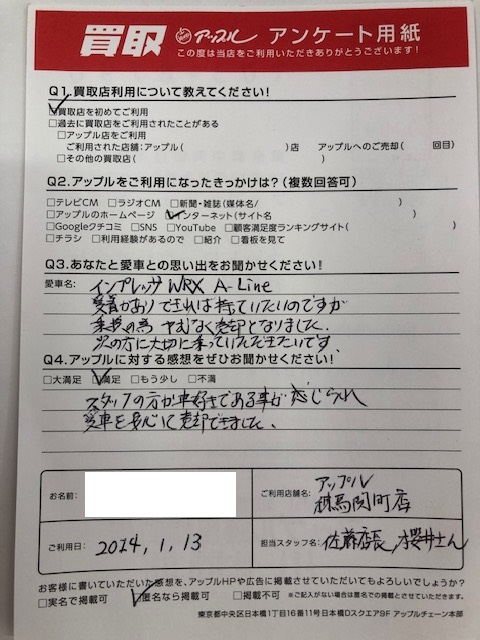 買取 アップル アンケート用紙
この度は当店をご利用いただきありがとうございます!
Q1.買取店利用について教えてください!
□買取店を初めてご利用
□過去に買取店をご利用されたことがある
□アップル店をご利用
ご利用された店舗:アップル( )店 アップルへのご売却( 回目)
□その他の買取店( )
Q2.アップルをご利用になったきっかけは?(複数回答可)
□テレビCM □ラジオCM □新聞・雑誌(媒体名/ )
□アップルのホームページ □インターネット(サイト名 )
□Googleクチコミ □SNS □YouTube □顧客満足度ランキングサイト( )
□チラシ □利用経験があるので □紹介 □看板を見て
Q3.あなたと愛車との思い出をお聞かせください!
愛車名: インプレッサ WRX A-Line
愛着がありできれば持っていたいのですが
乗換の為 やむなく売却となりました.
次の方に大切に乗っていただきたいです.
Q4.アップルに対する感想をぜひお聞かせください!
□大満足 □満足 □もう少し □不満
スタッフの方が車好きである事が感じられ
愛車を安心して売却できました.
お名前:
ご利用店舗名: アップル
練馬関町店
ご利用日: 2024,1,13
担当スタッフ名: 佐藤店長,桜井さん
お客様に書いていただいた感想を、アップルHPや広告に掲載させていただいてもよろしいでしょうか?
□実名で掲載可 □匿名なら掲載可 □掲載不可 ※ご記入がない場合は匿名での掲載とさせていただきます。
東京都中央区日本橋1丁目16番11号日本橋Dスクエア9F アップルチェーン本部